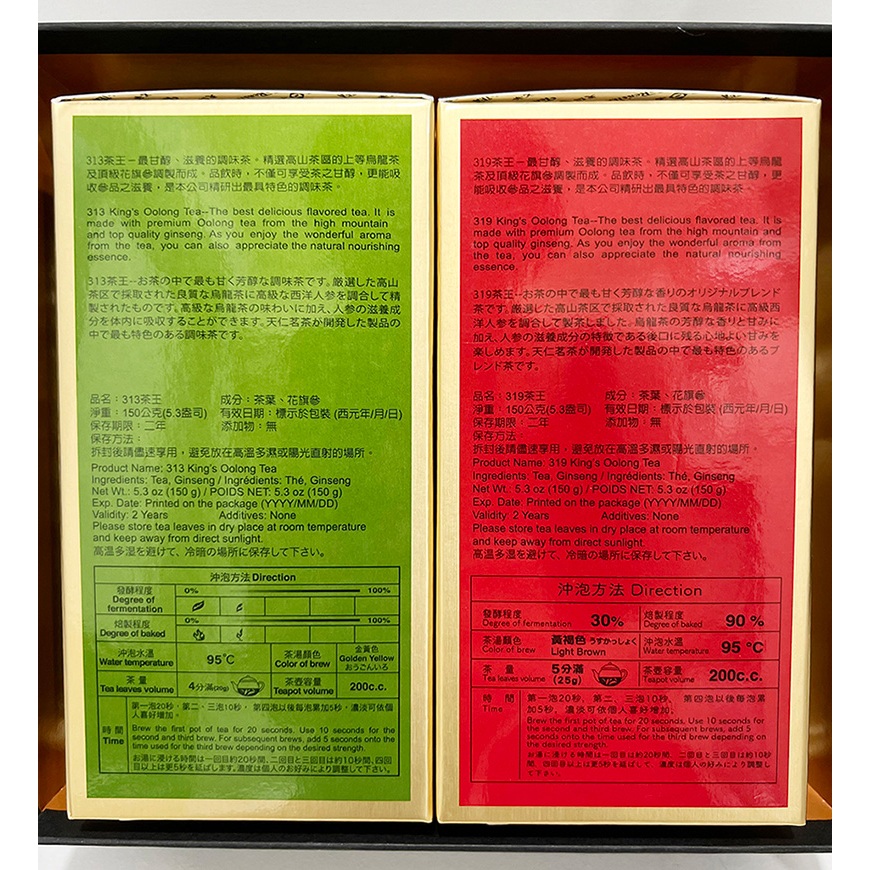 313茶王－最甘醇、滋養的調味茶。精選高山茶區的上等烏龍茶
及頂級花旗蔘調製而成。品飲時,不僅可享受茶之甘醇,更能吸
收蔘品之滋養,是本公司精研出最具特色的調味茶。
313 King's Oolong Tea--The best delicious flavored tea. It is
made with premium Oolong tea from the high mountain
and top quality ginseng. As you enjoy the wonderful aroma
from the tea, you can also appreciate the natural nourishing
essence.
313茶王--お茶の中で最も甘く芳醇な調味茶です。厳選した高山
茶区で採取された良質な烏龍茶に高級な西洋人参を調合して精
製されたものです。高級な烏龍茶の味わいに加え、人参の滋養成
分を体内に吸収することができます。天仁茗茶が開発した製品の
中で最も特色のある調味茶です。
品名：313茶王 成分：茶葉、花旗蔘
淨重：150公克(5.3盎司) 有效日期：標示於包裝 (西元年/月/日)
保存期限：二年 添加物：無
保存方法：
拆封後請儘速享用，避免放在高溫多濕或陽光直射的場所。
Product Name: 313 King's Oolong Tea
Ingredients: Tea, Ginseng / Ingrédients: Thé, Ginseng
Net Wt.: 5.3 oz (150 g) / POIDS NET: 5.3 oz (150 g)
Exp. Date: Printed on the package (YYYY/MM/DD)
Validity: 2 Years Additives: None
Please store tea leaves in dry place at room temperature
and keep away from direct sunlight.
高温多湿を避けて、冷暗の場所に保存して下さい。
沖泡方法 Direction
發酵程度 Degree of fermentation 0% 100%
焙製程度 Degree of baked 0% 100%
沖泡水溫 Water temperature 95°C 茶湯顏色 Color of brew 金黃色 Golden Yellow おうごんいろ
茶量 Tea leaves volume 4分滿(25g) 茶壺容量 Teapot volume 200c.c.
時間 Time
第一泡20秒，第二、三泡10秒， 第四泡以後每泡累加5秒，濃淡可依個
人喜好增加。
Brew the first pot of tea for 20 seconds. Use 10 seconds for
the second and third brew. For subsequent brews, add 5 seconds onto the
time used for the third brew depending on the desired strength.
お湯に浸ける時間は一回目は約20秒間、二回目と三回目は約10秒間、四回
目以上は更5秒を延ばします。濃度は個人のお好みにより調整して下さい。
319茶王－最甘醇、滋養的調味茶。精選高山茶區的上等烏龍
茶及頂級花旗蔘調製而成。品飲時、不僅可享受茶之甘醇，更
能吸收蔘品之滋養、是本公司精研出最具特色的調味茶。
319 King's Oolong Tea--The best delicious flavored tea. It is
made with premium Oolong tea from the high mountain and
top quality ginseng. As you enjoy the wonderful aroma from
the tea, you can also appreciate the natural nourishing
essence.
319茶王--お茶の中で最も甘く芳醇な香りのオリジナルブレンド
茶です。厳選した高山茶区で採取された良質な烏龍茶に高級西
洋人参を調合して製茶しました。烏龍茶の芳醇な香りと甘みに
加え、人参の滋養成分の特徴である後口に残る心地よい甘みを
楽しめます。天仁茗茶が開発した製品の中で最も特色のあるブ
レンド茶です。
品名：319茶王 成分：茶葉、花旗蔘
淨重：150公克(5.3盎司) 有效日期：標示於包裝 (西元年/月/日)
保存期限：二年 添加物：無
保存方法：
拆封後請儘速享用，避免放在高溫多濕或陽光直射的場所。
Product Name: 319 King's Oolong Tea
Ingredients: Tea, Ginseng / Ingrédients: Thé, Ginseng
Net Wt.: 5.3 oz (150 g) / POIDS NET: 5.3 oz (150 g)
Exp. Date: Printed on the package (YYYY/MM/DD)
Validity: 2 Years Additives: None
Please store tea leaves in dry place at room temperature
and keep away from direct sunlight.
高温多湿を避けて、冷暗の場所に保存して下さい。
沖泡方法 Direction
發酵程度 Degree of fermentation 30% 焙製程度 Degree of baked 90 %
茶湯顏色 Color of brew 黃褐色 うすかっしょく Light Brown 沖泡水溫 Water temperature 95 °C
茶量 Tea leaves volume 5分滿 (25g) 茶壺容量 Teapot volume 200c.c.
時間 Time
第一泡20秒、第二、三泡10秒、 第四泡以後每泡累
加5秒，濃淡可依個人喜好增加。
Brew the first pot of tea for 20 seconds. Use 10 seconds for
the second and third brew. For subsequent brews, add 5
seconds onto the time used for the third brew depending on
the desired strength.
お湯に浸ける時間は一回目は約20秒間、二回目と三回目は約10秒
間、四回目以上は更5秒を延ばして、濃度は個人のお好みにより調整し
て下さい。